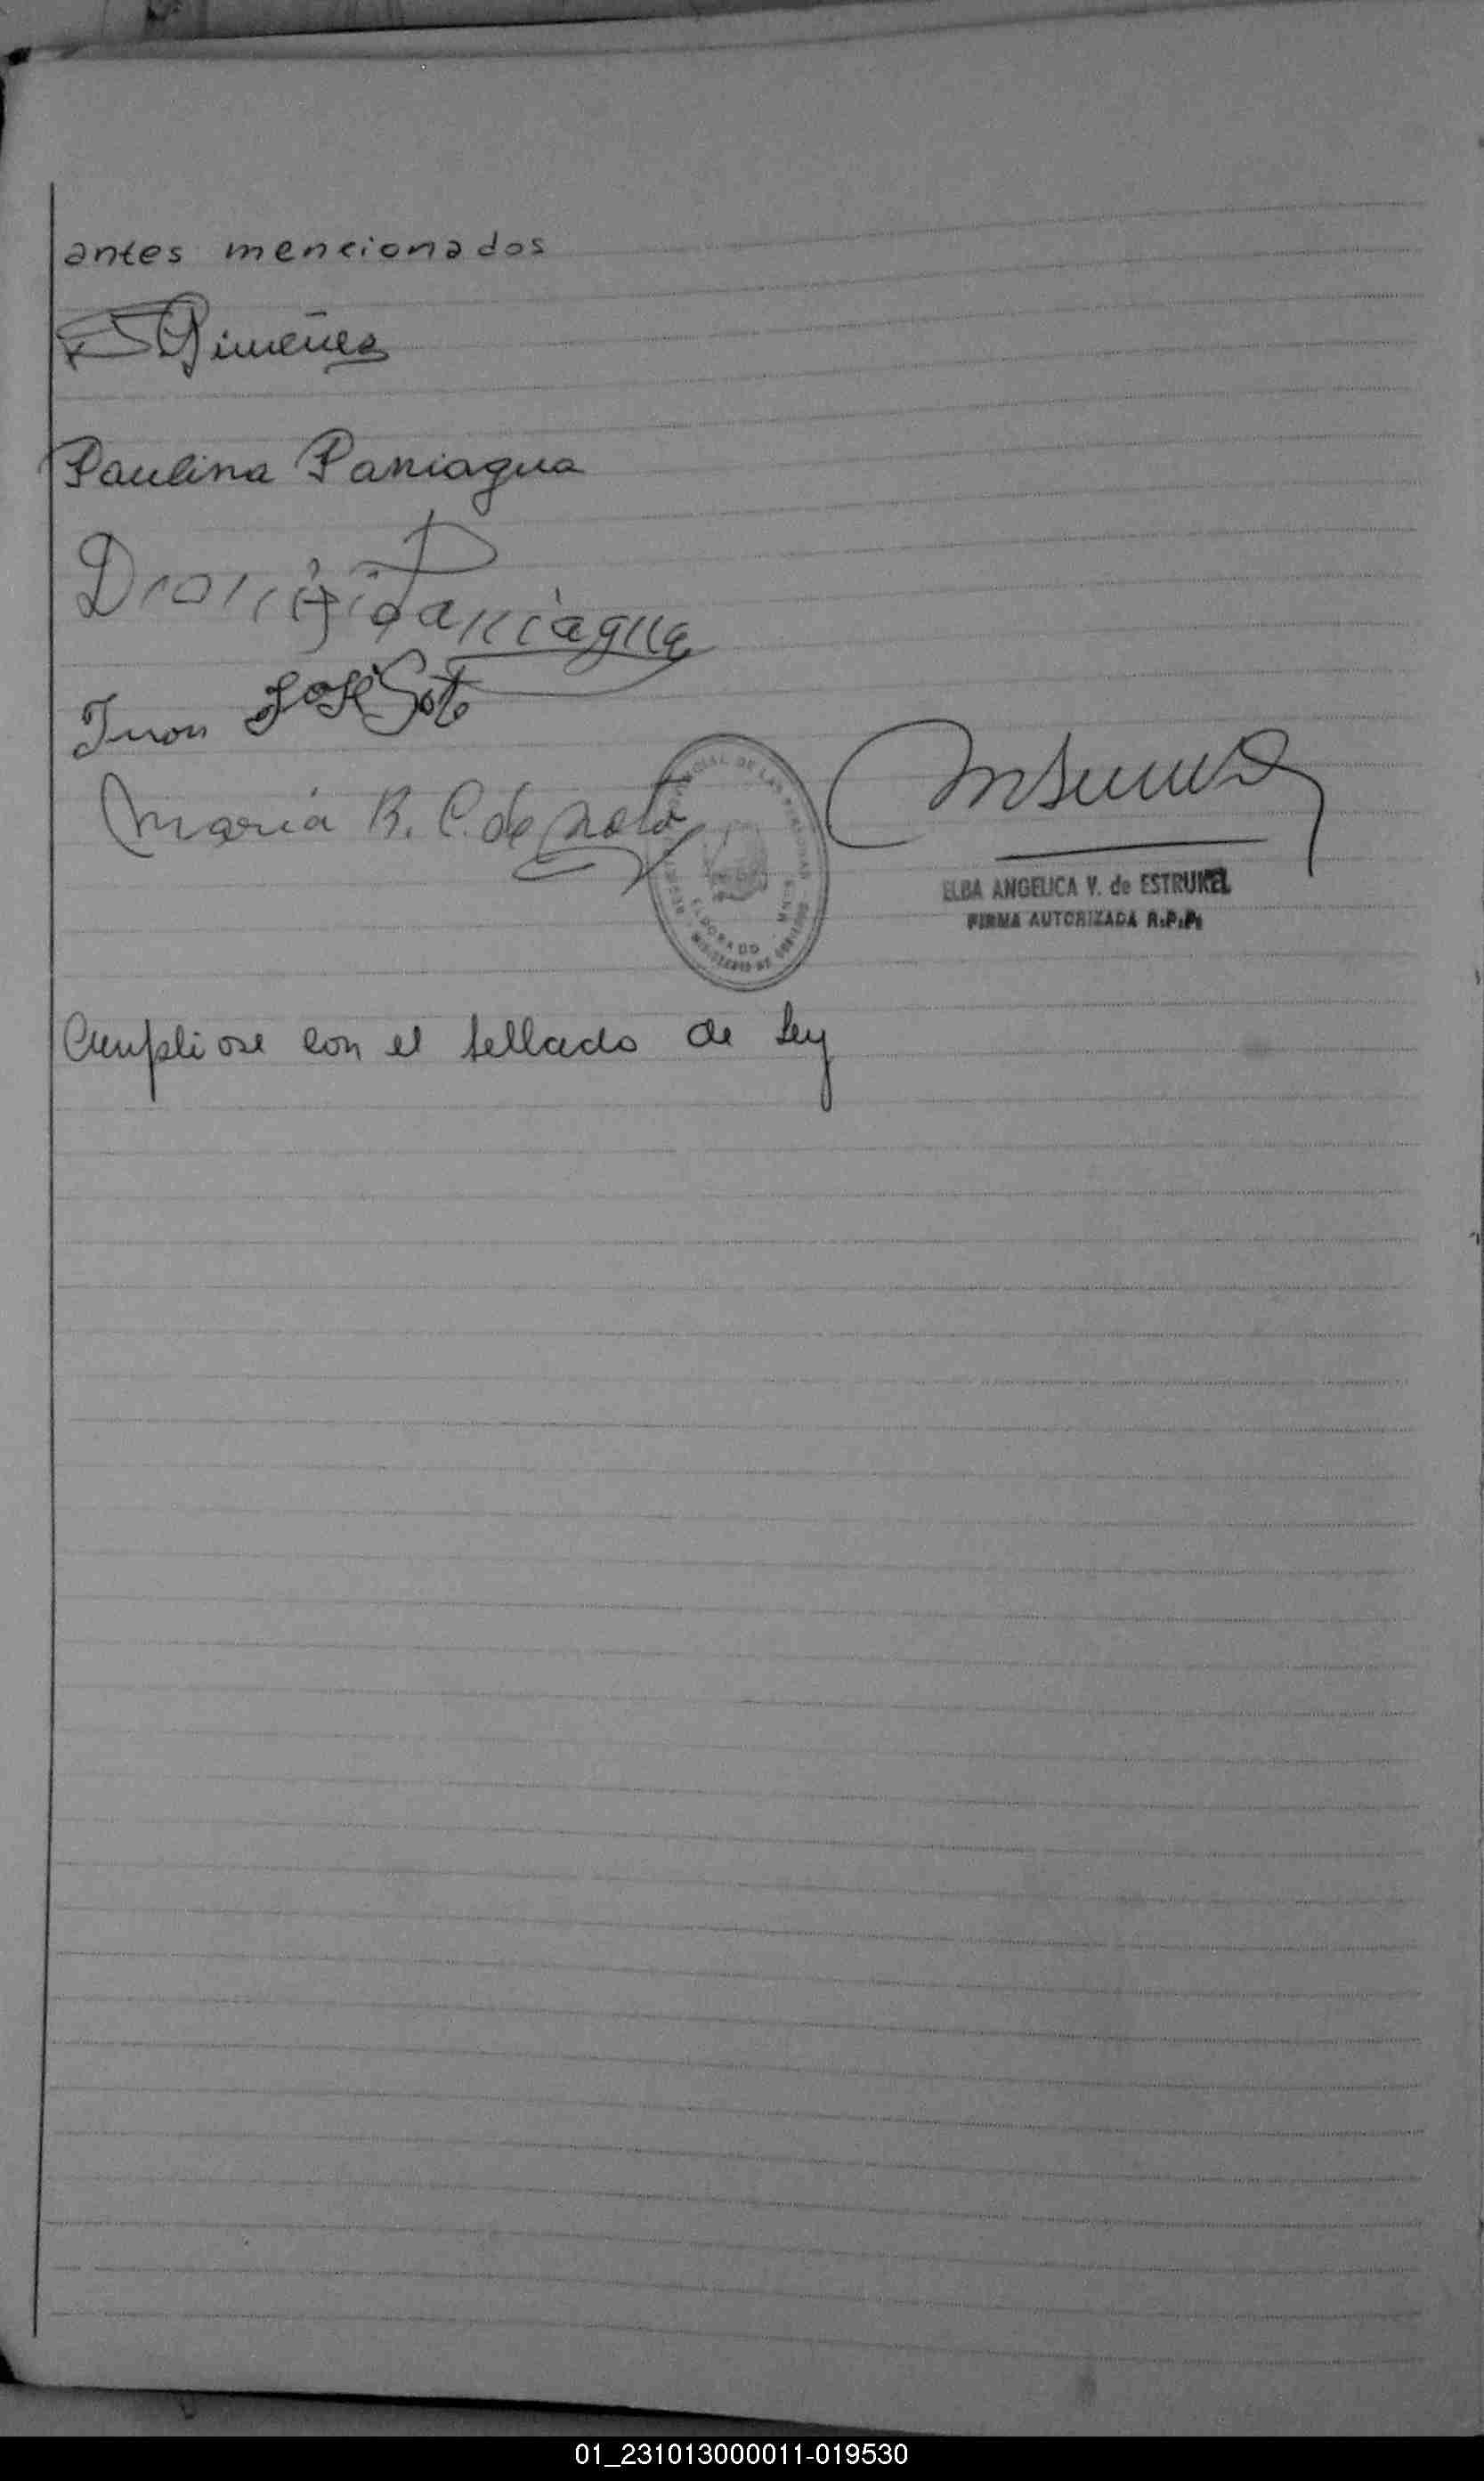 antes mencionados
Gimeñez
Paulina Paniagua
Dionicio Paniagua
Juan José Soto
Maria B. C. de Soto
REGISTRO PROVINCIAL DE LAS PERSONAS
ELDORADO - MNES.
MINISTERIO DE GOBIERNO
ELBA ANGELICA V. de ESTRUKEL
FIRMA AUTORIZADA R.P.P.
Cumpliose con el sellado de Ley
01_231013000011-019530